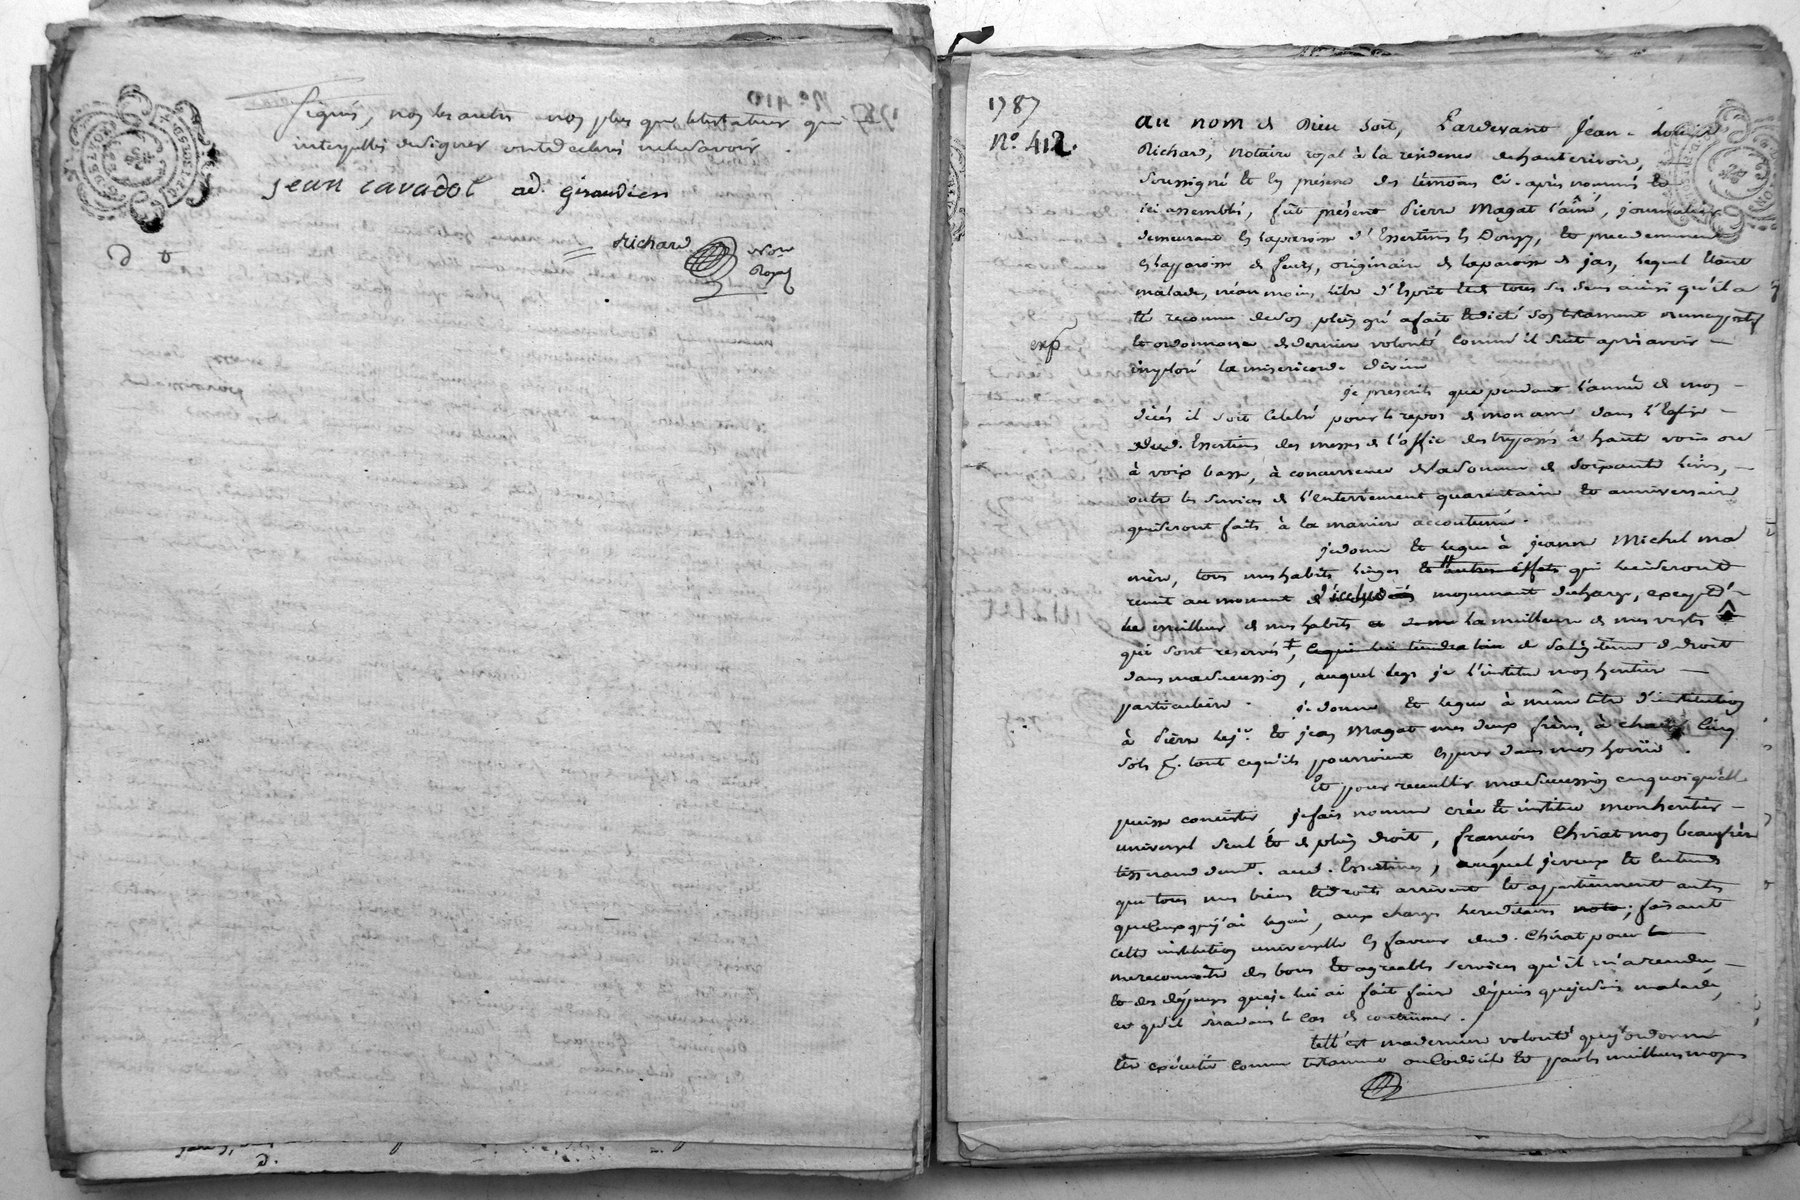 signés, non les autres non plus que le testateur qui
interpellés de signer ont declaré ne le savoir.
jean cavadol ad. giraudien
Richard No.re
Royal
1787
N.o 412.
au nom de Dieu soit, Pardevant Jean-Louis
Richard, Notaire royal à la residence de hauterivoire,
soussigné et en presence des témoins ci-après nommés et
ici assemblés, fût présent Pierre Magat l'aîné, journalier
demeurant en la paroisse d'Essertines en Donzy, et precedemment
en la paroisse de feurs, originaire de la paroisse de jas, lequel étant
malade, néanmoins libre d'Esprit et de tous ses sens ainsi qu'il a
été reconnu de son plein gré a fait et dicté son testament nuncupatif
exp
et ordonnance de derniere volonté comme il suit après avoir
imploré la misericorde divine
je prescrits que pendant l'année de mon
décès il soit celebré pour le repos de mon ame dans l'Eglise
dud. Essertines des messes de l'office des trepassés à haute voix ou
à voix basse, à concurrence de la somme de soixante livres,
outre les services de l'enterrement quarantaine et anniversaire
qui seront faits à la maniere accoutumée.
je donne et legue à jeanne Michel ma
mere, tous mes habits linges et autres effets qui lui seront
remis au moment de mon decès moyennant decharge, excepté
le meilleur de mes habits et la meilleure de mes vestes
qui sont reservés, ce qui lui tiendra lieu de sa légitime et droit
dans ma succession, auquel legs je l'institue mon heritiere
particuliere. je donne et legue à même titre d'institution
à Pierre le j.e et jean Magat mes deux freres, à chacun cinq
sols p. tout ce qu'ils pourroient esperer dans mon hoirie.
Et pour recueillir ma succession en quoi qu'elle
puisse consister je fais nomme crée et institue mon heritier
universel seul et de plein droit, françois Chirat mon beaufrère
tisserand dem.t aud. Essertines, auquel je veux et entends
que tous mes biens et droits arrivent et appartiennent autres
que ceux que j'ai legué, aux charges hereditaires; faisant
cette institution universelle en faveur dud. Chirat pour
me reconnoitre des bons et agreables services qu'il m'a rendu
et des depenses que je lui ai fait faire depuis que je suis malade,
et qu'il sera dans le cas de continuer.
telle est ma derniere volonté que j'ordonne
être executée comme testament ou Codicile et par les meilleurs moyens